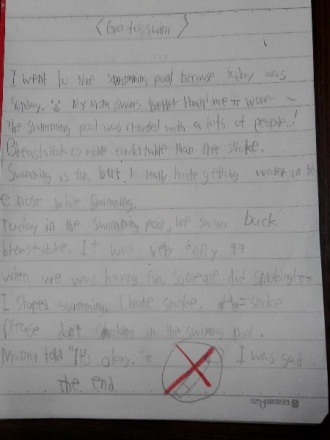 <Go to swim>
I went to the swimming pool because today was
Sunday. My mom swims better than me ㅠ wow ~
The swimming pool was crowded with a lots of people..!
Breaststroke is more comfortable than free stroke.
Swimming is fun, but I really hate getting water in th
e nose while swimming.
Today in the swimming pool, we swim back
breaststroke. It was very funny ㅋㅋ
when we was having fun, someone did smoking
I stoped swimming. I hate smoke. smoke
please don't smoking in the swimming pool.
Mommy told "Yes okay." I was sad
The end.